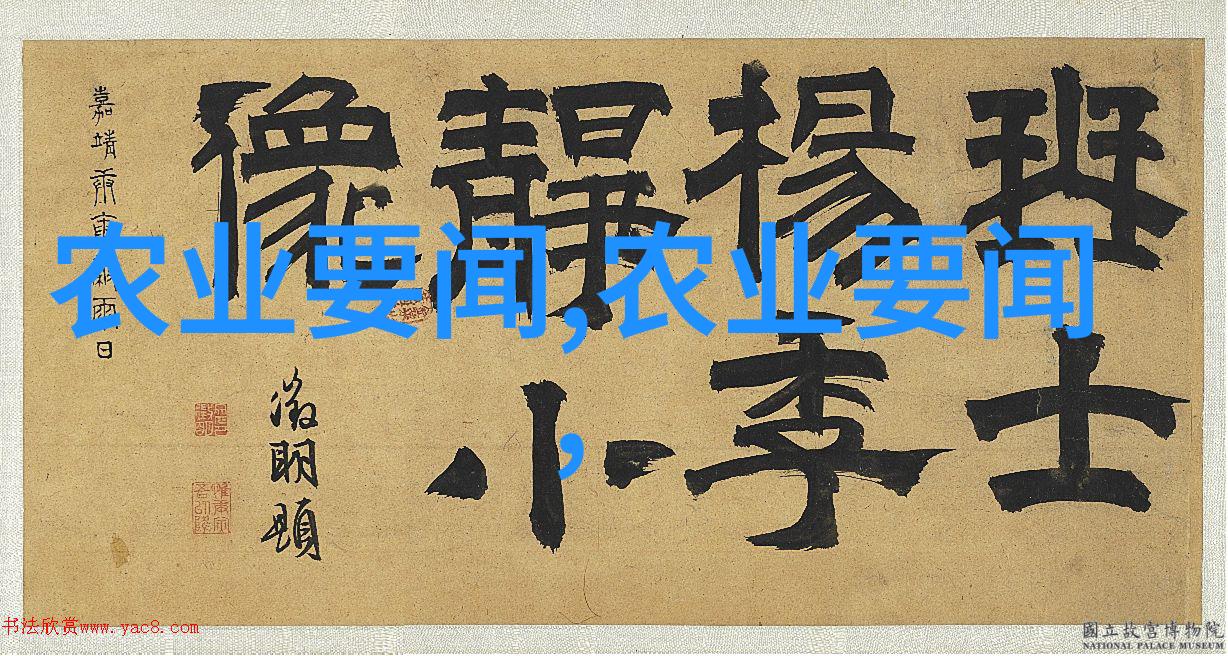 农业要闻,农业要闻
,
琴士
楊季
靜小
像
徵明題
嘉靖庚寅 雨日
书法欣赏www.yac8.com
國立故宮博物院
NATIONAL PALACE MUSEUM